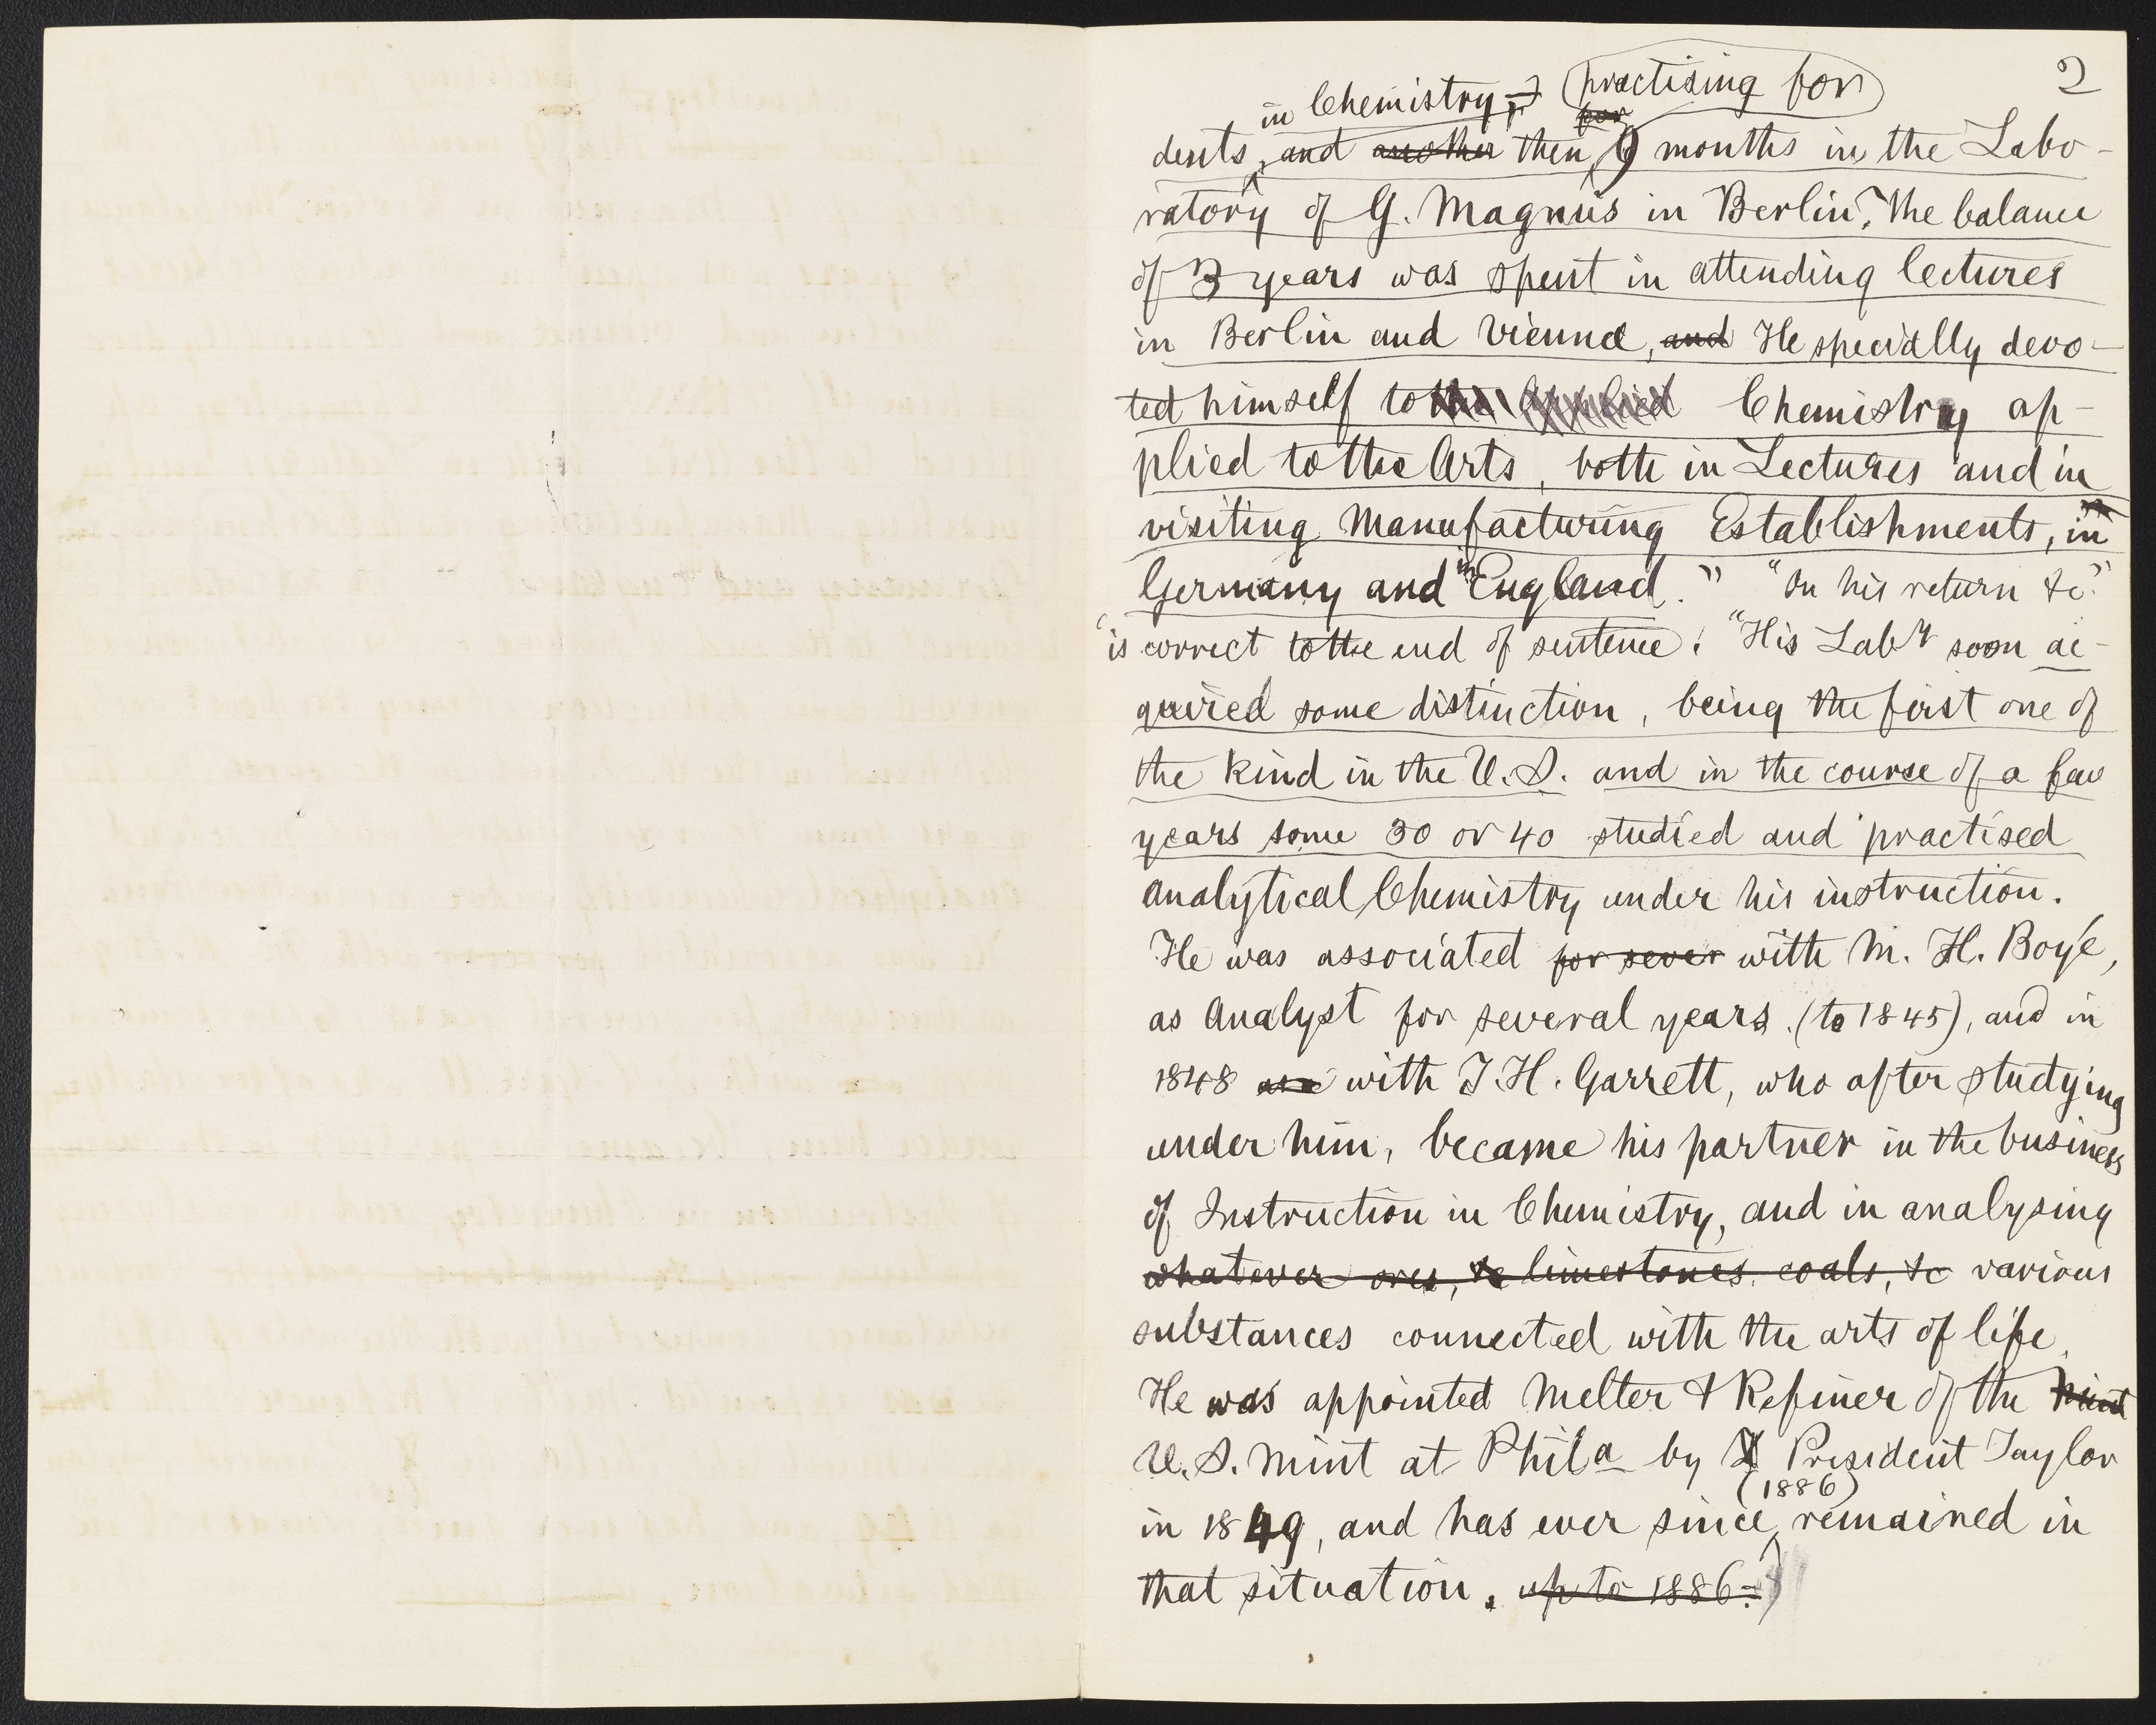 2
in Chemistry, practising for
dents, and another then for 9 months in the Labo-
ratory of G. Magnus in Berlin. The balance
of 3 years was spent in attending lectures
in Berlin and Vienna, and He specially devo-
ted himself to the applied Chemistry ap-
plied to the Arts, both in Lectures and in
visiting Manufacturing Establishments, in
Germany and in England." "On his return &c."
is correct to the end of sentence. "His Laby soon ac-
quired some distinction, being the first one of
the kind in the U.S. and in the course of a few
years some 30 or 40 studied and practised
Analytical Chemistry under his instruction.
He was associated for sever with M. H. Boyé,
as Analyst for several years (to 1845), and in
1848 with T. H. Garrett, who after studying
under him, became his partner in the business
of Instruction in Chemistry, and in analysing
whatever ores, &c limestones, coals, &c various
substances connected with the arts of life.
He was appointed Melter & Refiner of the Mint
U.S. Mint at Phila by President Taylor
(1886)
in 1849, and has ever since, remained in
that situation. up to 1886.)